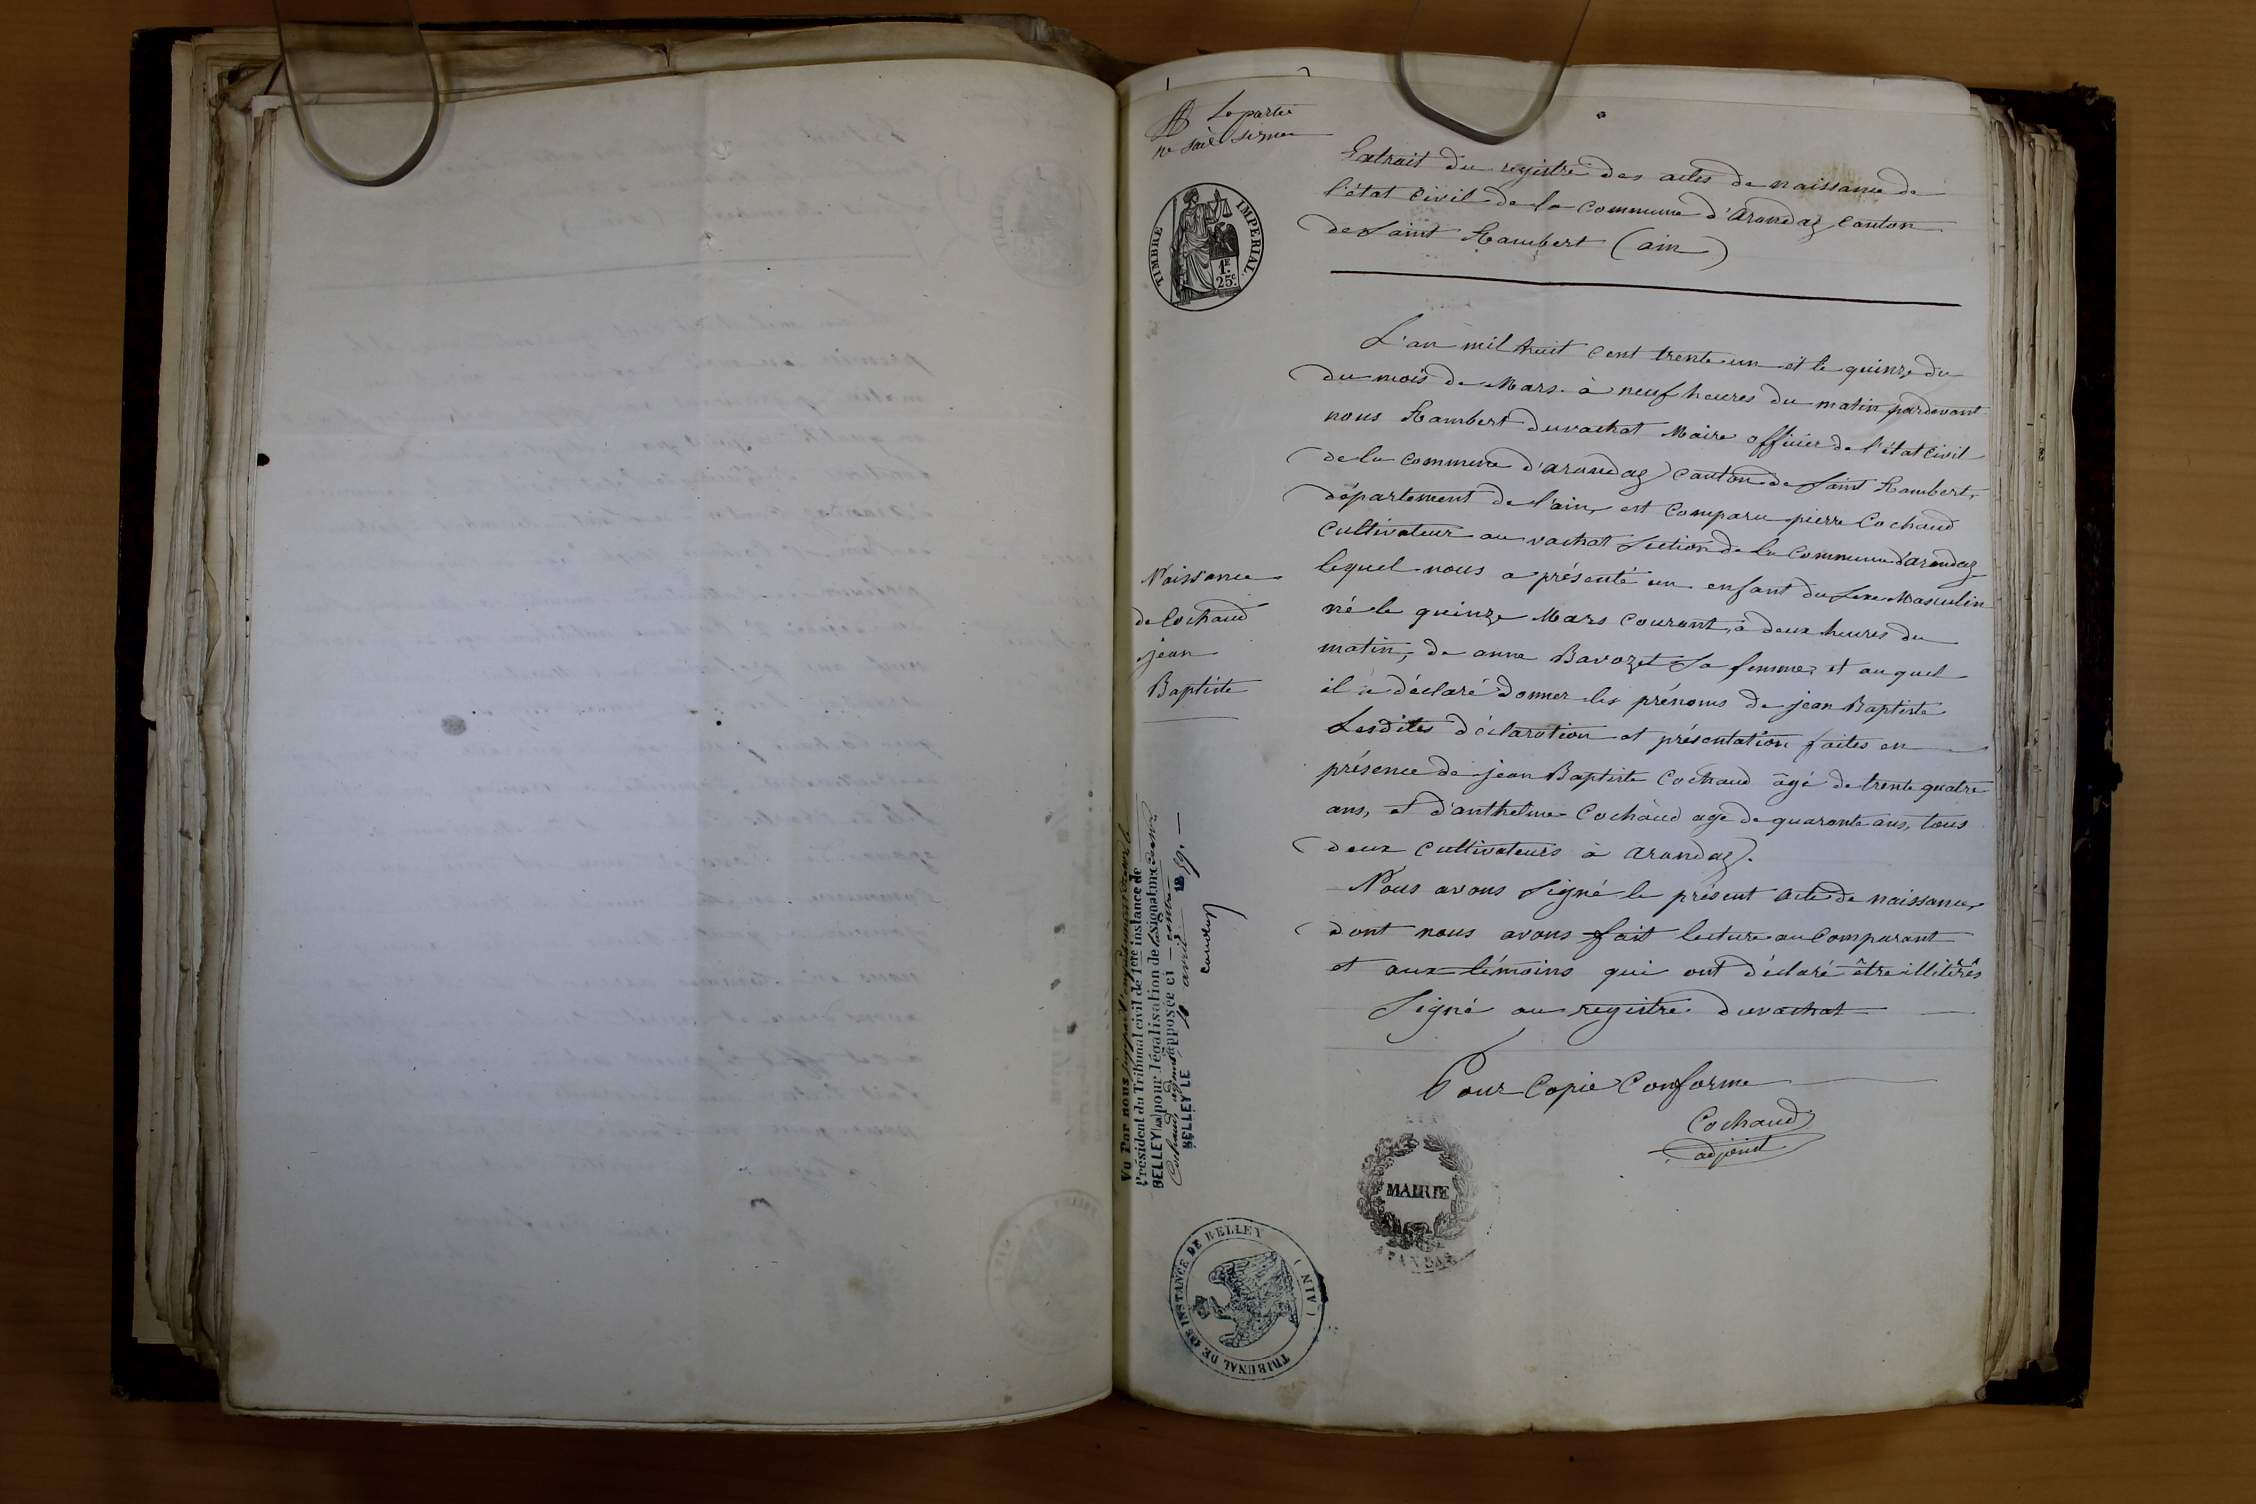 Le partie
ne sait signer
TIMBRE IMPERIAL
1F 25c.
Extrait du registre des actes de naissance de
l'état civil de la commune d'arandaz canton
de Saint Rambert (ain)
L'an mil huit cent trente un et le quinze du
du mois de Mars à neuf heures du matin pardevant
nous Rambert duvachat Maire officier de l'état civil
de la commune d'arandaz canton de Saint Rambert,
département de l'ain, est comparu pierre Cochaud
cultivateur au vachat section de la commune d'arandaz
lequel nous a présenté un enfant du sexe Masculin
né le quinze Mars courant, à deux heures du
matin, de anne Bavozet sa femme, et auquel
il a déclaré donner les prénoms de jean Baptiste
Lesdites déclaration et présentation faites en
présence de jean Baptiste Cochaud âgé de trente quatre
ans, et d'anthelme Cochaud age de quarante ans, tous
deux cultivateurs à arandaz.
Nous avons signé le présent acte de naissance,
dont nous avons fait lecture au comparant
et aux témoins qui ont déclaré être illitérés
Signé au registre duvachat
Pour Copie Conforme
Cochaud
adjoint
Naissance
de Cochaud
jean
Baptiste
Vu Par nous
Président du Tribunal civil de 1ère instance de
BELLEY (Ain) pour légalisation de la signature
Cochaud, adjoint apposée ci contre
BELLEY LE 10 avril 1859.
MAIRIE
TRIBUNAL DE 1RE INSTANCE DE BELLEY (AIN)